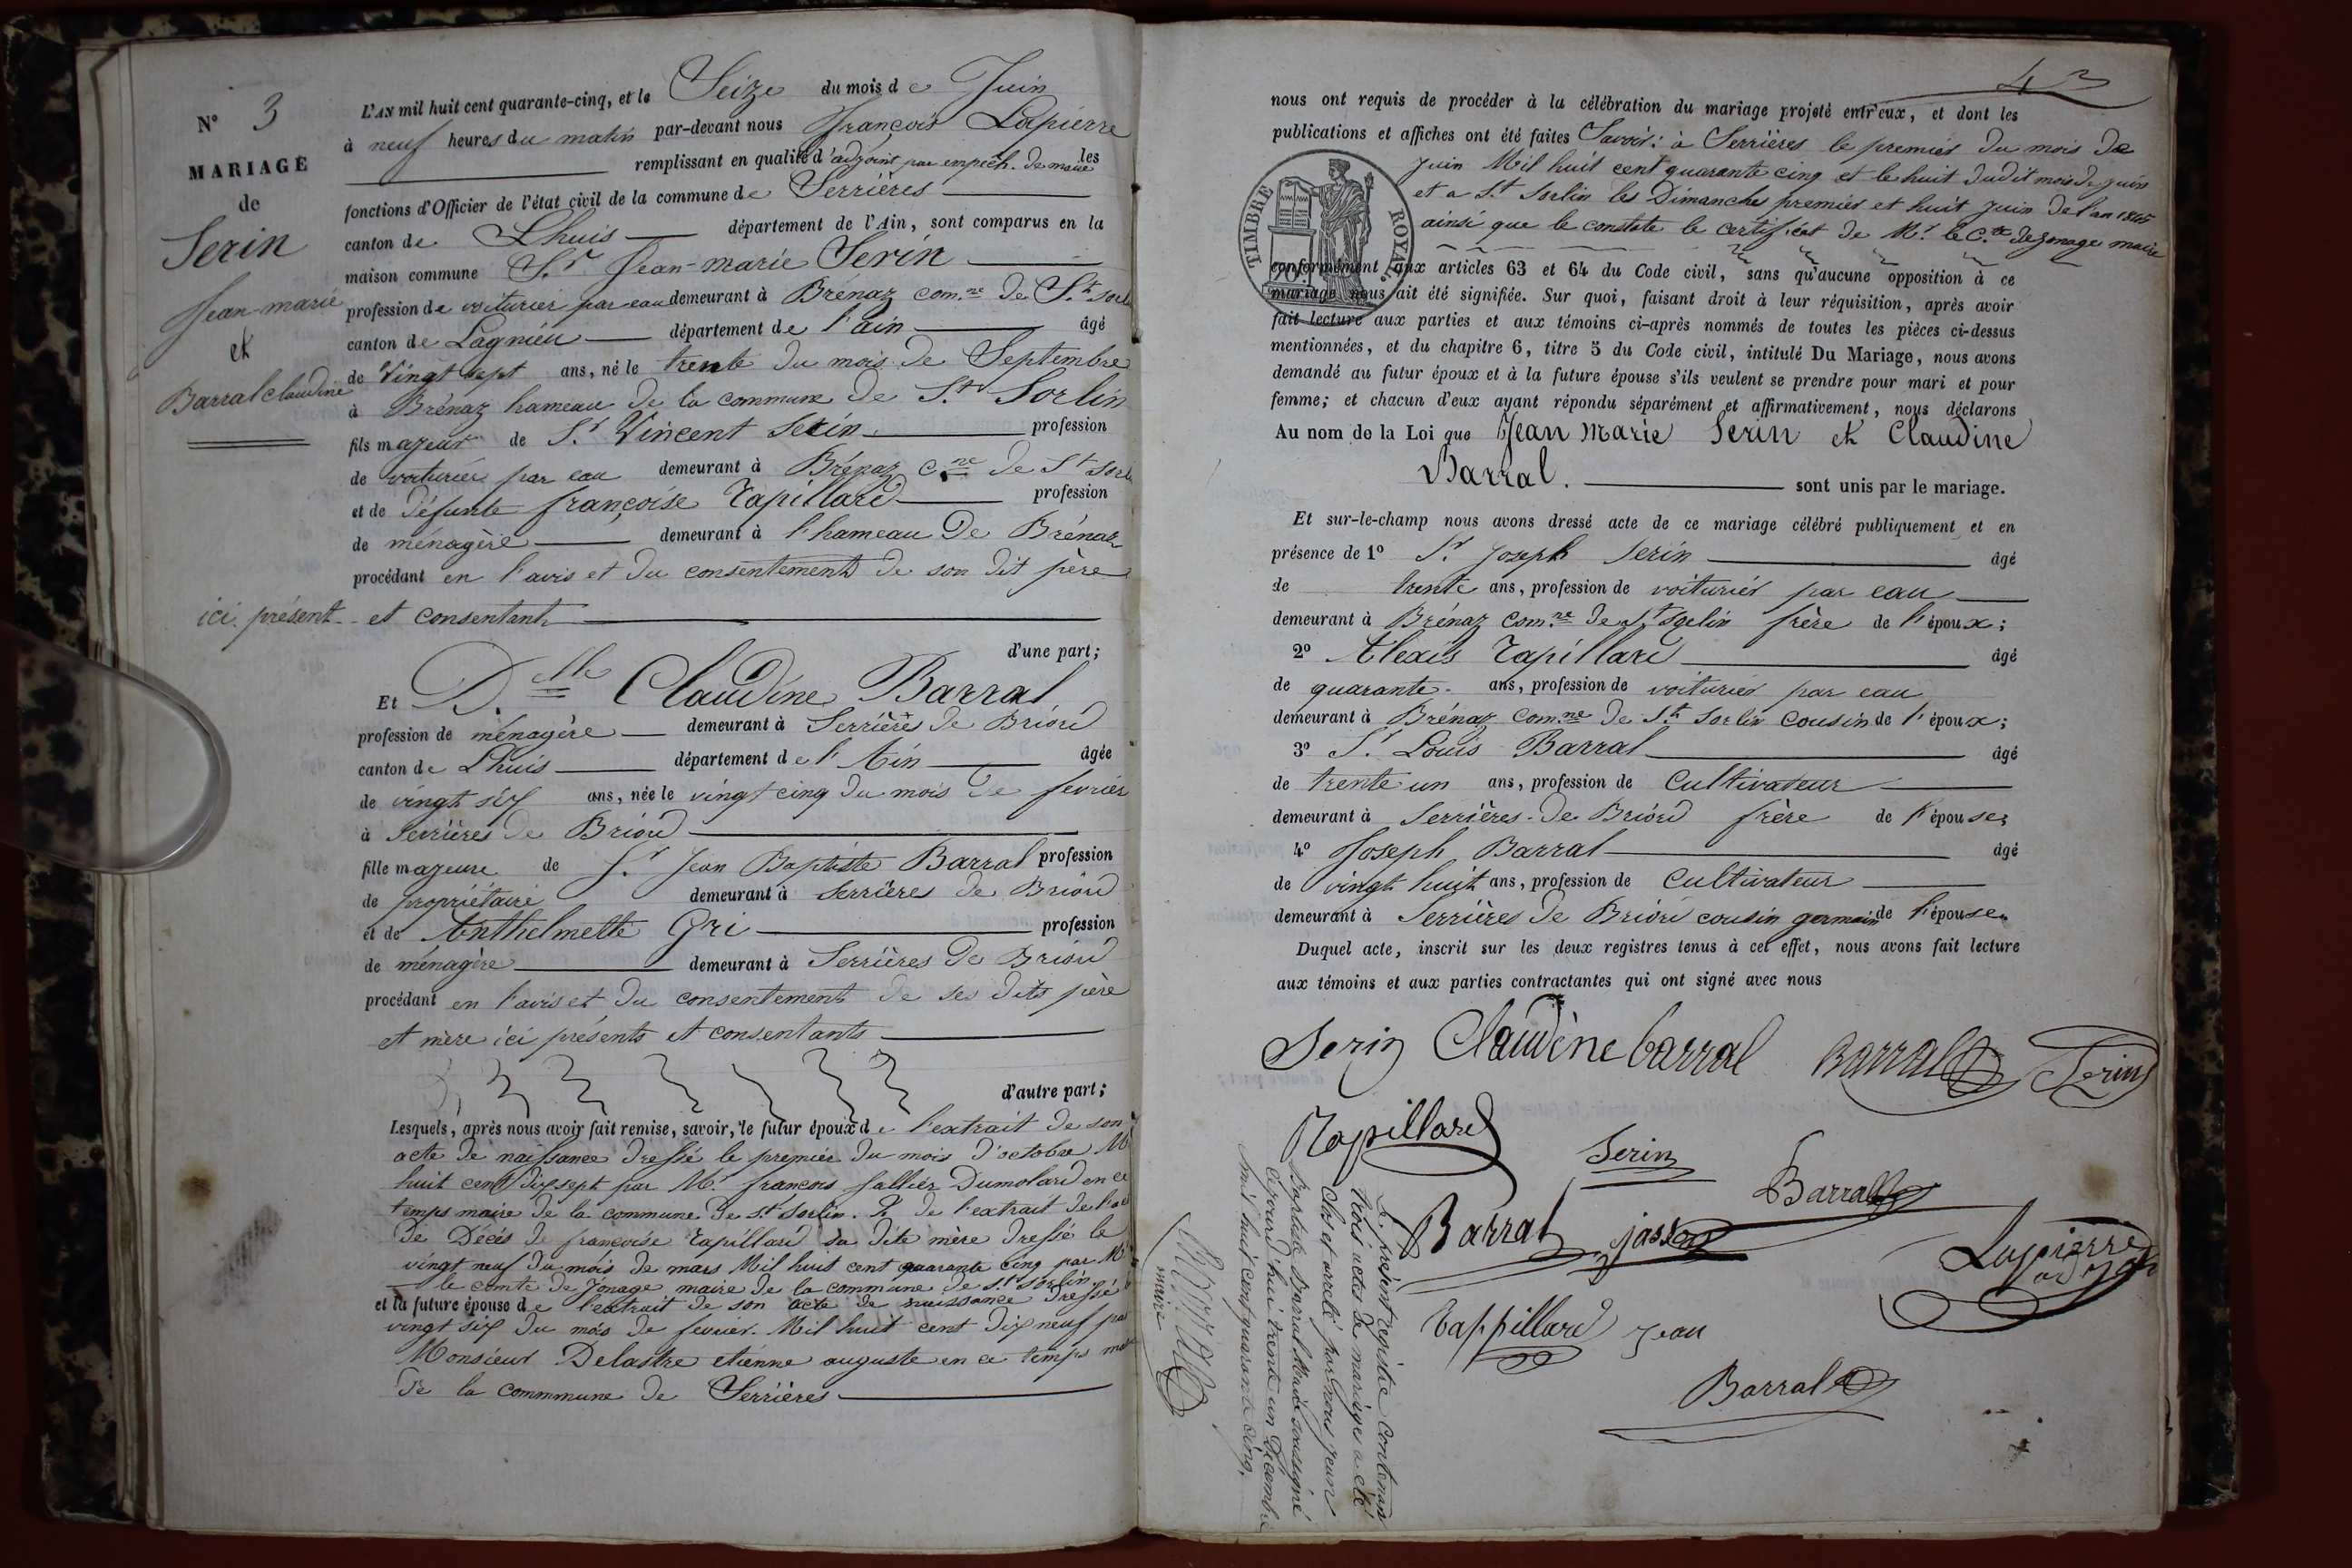 N° 3
MARIAGE
de
Serin
Jean-marie
et
Barral Claudine
L'AN mil huit cent quarante-cinq, et le Seize du mois de Juin
à neuf heures du matin par-devant nous François Lapierre
remplissant en qualité d'adjoint par empech. de maire les
fonctions d'Officier de l'état civil de la commune de Serrières
canton de Lhuis département de l'Ain, sont comparus en la
maison commune S.r Jean-marie Serin
profession de voiturier par eau demeurant à Brénaz com.ne de S.t Sorlin
canton de Lagnieu département de l'ain âgé
de Vingt sept ans, né le trente du mois de Septembre
à Brénaz hameau de la commune de S.t Sorlin
fils majeur de S.r Vincent Serin profession
de voiturier par eau demeurant à Brénaz c.ne de S.t Sorlin
et de défunte françoise Tapillard profession
de ménagère demeurant à l'hameau de Brénaz
procédant en l'avis et du consentement de son dit père
ici présent et consentant
d'une part;
Et D.lle Claudine Barral
profession de ménagère demeurant à Serrières de Briord
canton de Lhuis département de l'Ain âgée
de vingt six ans, née le vingt cinq du mois de fevrier
à Serrières de Briord
fille majeure de S.r Jean Baptiste Barral profession
de propriétaire demeurant à Serrières de Briord
et de Anthelmette Gri profession
de ménagère demeurant à Serrières de Briord
procédant en l'avis et du consentement de ses dits père
et mère ici présents et consentants
d'autre part;
Lesquels, après nous avoir fait remise, savoir, le futur époux de l'extrait de son
acte de naissance dressé le premier du mois d'octobre M
huit cent dix sept par M.r francois Dumolard en ce
temps maire de la commune de S.t Sorlin. 2 de l'extrait de l'ac
de Décés de françoise Tapillard sa dite mère dressé le
vingt neuf du mois de mars Mil huit cent quarante cinq par M
le comte de Jonage maire de la commune de S.t Sorlin.
et la future épouse de l'extrait de son acte de naissance dressé
vingt six du mois de fevrier Mil huit cent dix neuf par
Monsieur Delastre etienne auguste en ce temps ma
de la commmune de Serrières
43
nous ont requis de procéder à la célébration du mariage projeté entr'eux, et dont les
publications et affiches ont été faites Savoir: à Serrières le premier du mois de
juin Mil huit cent quarante cinq et le huit dudit mois de juin
et a S.t Sorlin les Dimanches premier et huit juin de l'an 1845
ainsi que le constate le certificat de M.r le C.te de jonage maire
TIMBRE ROYAL.
conformément aux articles 63 et 64 du Code civil, sans qu'aucune opposition à ce
mariage nous ait été signifiée. Sur quoi, faisant droit à leur réquisition, après avoir
fait lecture aux parties et aux témoins ci-après nommés de toutes les pièces ci-dessus
mentionnées, et du chapitre 6, titre 5 du Code civil, intitulé Du Mariage, nous avons
demandé au futur époux et à la future épouse s'ils veulent se prendre pour mari et pour
femme; et chacun d'eux ayant répondu séparément et affirmativement, nous déclarons
Au nom de la Loi que Jean Marie Serin et Claudine
Barral. sont unis par le mariage.
Et sur-le-champ nous avons dressé acte de ce mariage célébré publiquement et en
présence de 1° S.r Joseph Serin âgé
de trente ans, profession de voiturier par eau
demeurant à Brénaz com.ne de S.t Sorlin frère de l'époux;
2° Alexis Tapillard âgé
de quarante ans, profession de voiturier par eau
demeurant à Brénaz com.ne de S.t Sorlin cousin de l'époux;
3° S.r Louis Barral âgé
de trente un ans, profession de Cultivateur
demeurant à Serrières-de Briord frère de l'épouse;
4° Joseph Barral âgé
de vingt huit ans, profession de Cultivateur
demeurant à Serrières de Briord cousin germain de l'épouse.
Duquel acte, inscrit sur les deux registres tenus à cet effet, nous avons fait lecture
aux témoins et aux parties contractantes qui ont signé avec nous
Serin Claudine barral Barral Serin
Tapillard Serin Barral
Barral Lapierre
adj
Tappillard Jean
Barral
Le présent registre Contenant
trois actes de mariages a été
Clos et arrêté par nous jean
Baptiste Barral Maire soussigné
cejourd'hui trente un décembre
mil huit cent quarante cinq.
Barral
maire